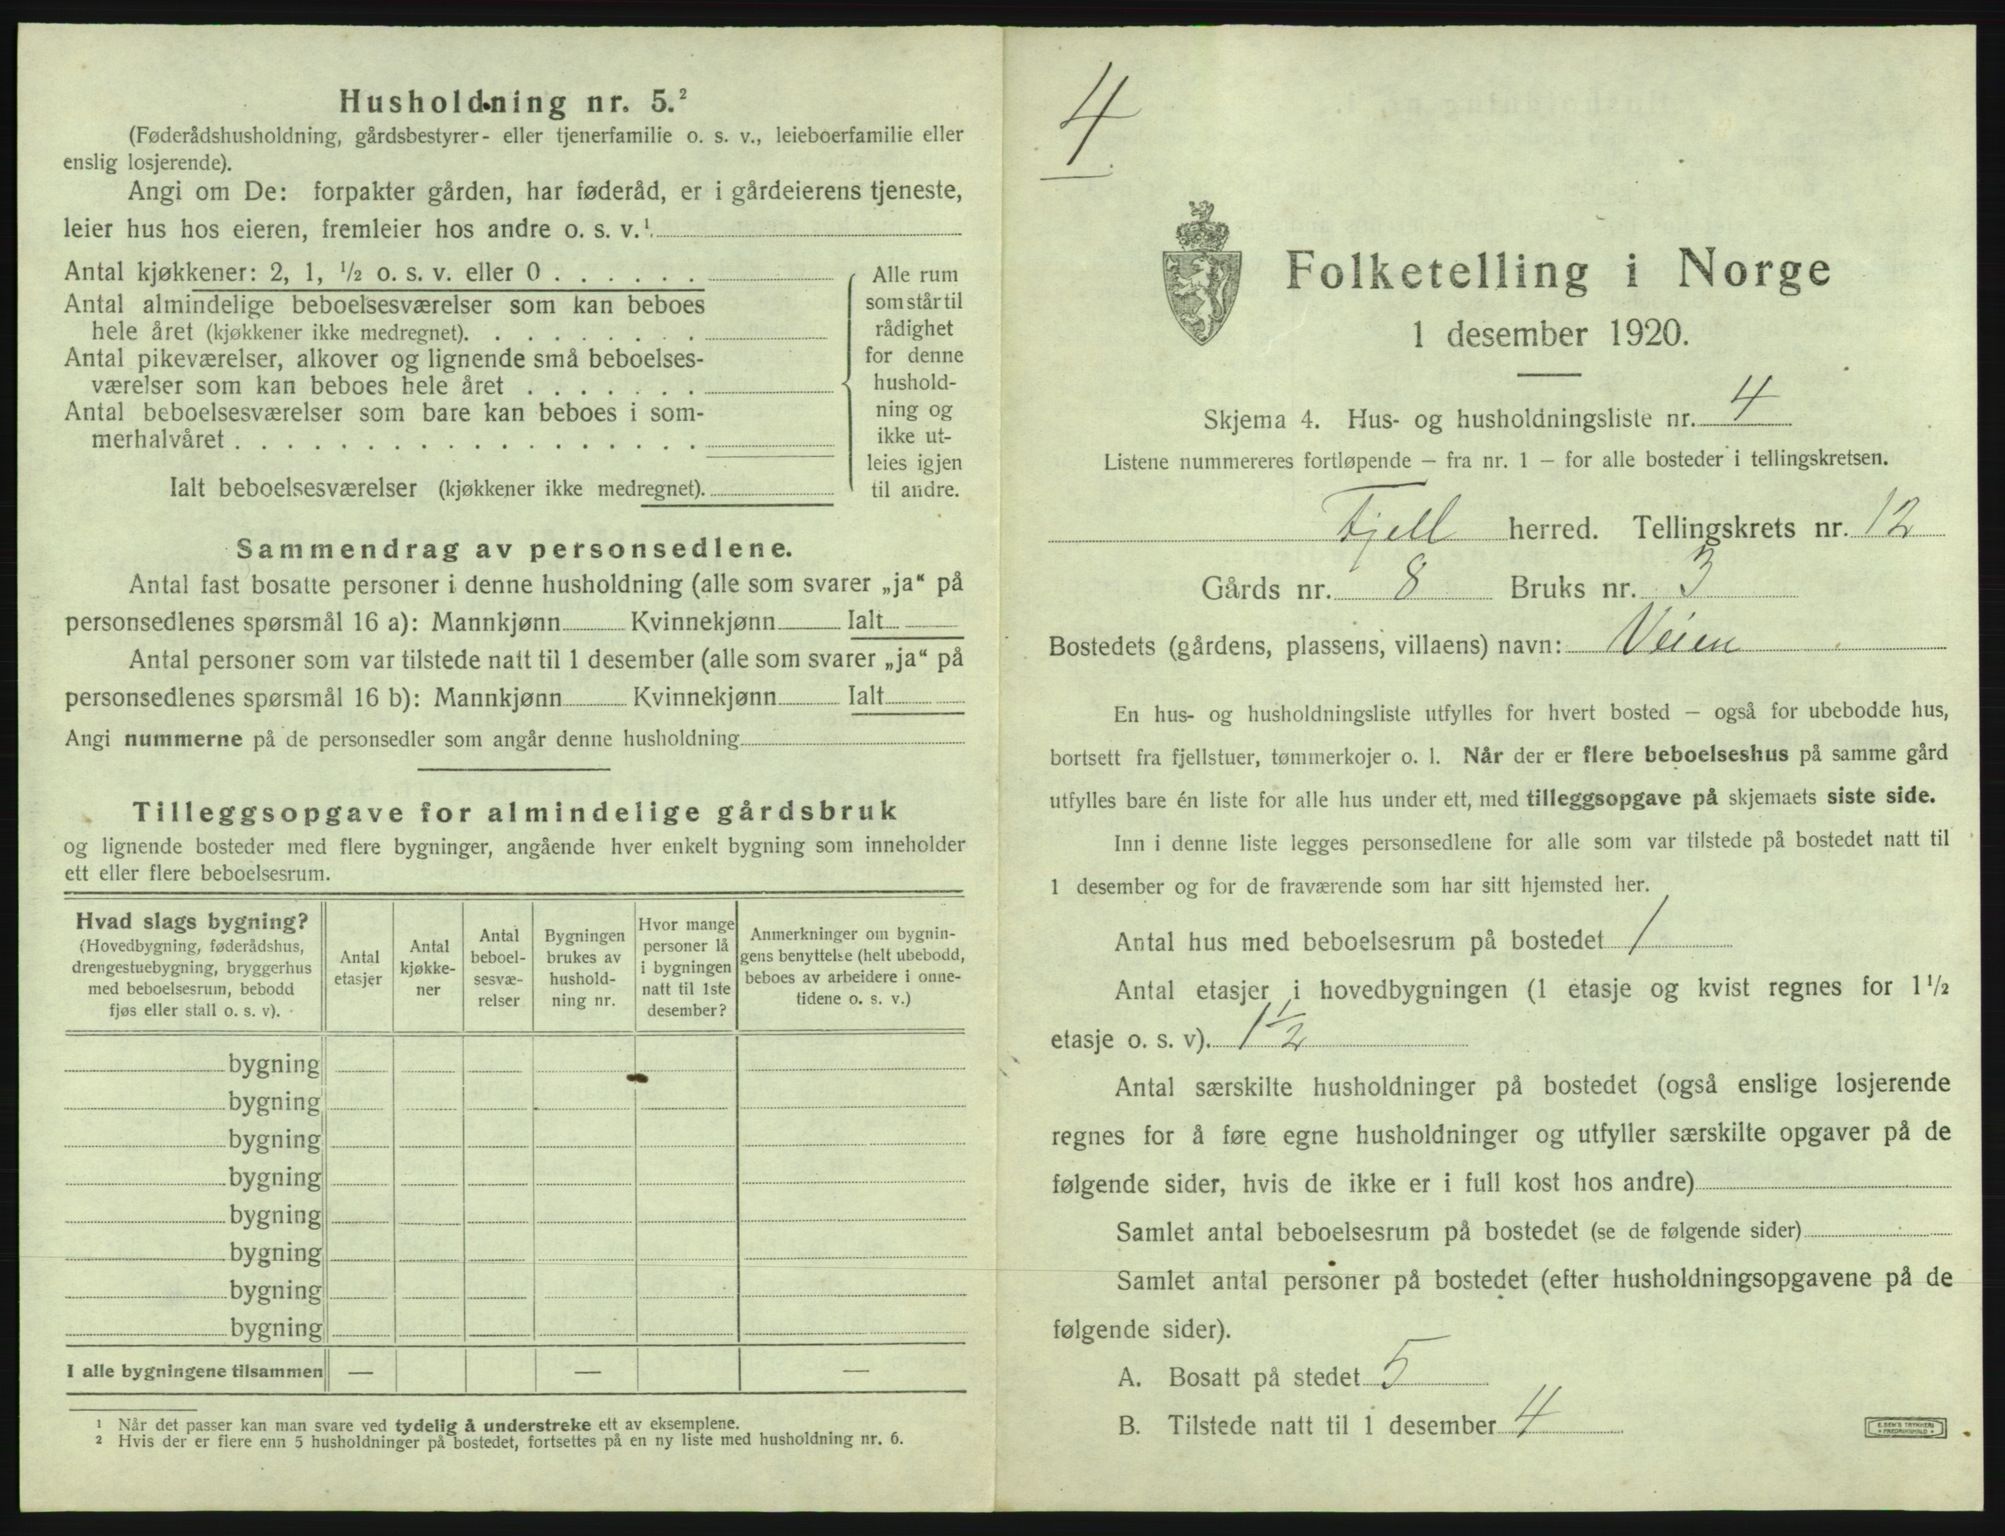 Husholdning nr. 5.²
(Føderådshusholdning, gårdsbestyrer- eller tjenerfamilie o. s. v., leieboerfamilie eller
enslig losjerende).
Angi om De: forpakter gården, har føderåd, er i gårdeierens tjeneste,
leier hus hos eieren, fremleier hos andre o. s. v.¹
Antal kjøkkener: 2, 1, ½ o. s. v. eller 0 . . . . . .
Antal almindelige beboelsesværelser som kan beboes
hele året (kjøkkener ikke medregnet). . . . . . . . .
Antal pikeværelser, alkover og lignende små beboelses-
værelser som kan beboes hele året . . . . . . .
Antal beboelsesværelser som bare kan beboes i som-
merhalvåret . . . . . . . . . . . . . . . . . .
Ialt beboelsesværelser (kjøkkener ikke medregnet).
Alle rum
som står til
rådighet
for denne
hushold-
ning og
ikke ut-
leies igjen
til andre.
Sammendrag av personsedlene.
Antal fast bosatte personer i denne husholdning (alle som svarer „ja“ på
personsedlenes spørsmål 16 a): Mannkjønn Kvinnekjønn Ialt
Antal personer som var tilstede natt til 1 desember (alle som svarer „ja“ på
personsedlenes spørsmål 16 b): Mannkjønn Kvinnekjønn Ialt
Angi nummerne på de personsedler som angår denne husholdning
Tilleggsopgave for almindelige gårdsbruk
og lignende bosteder med flere bygninger, angående hver enkelt bygning som inneholder
ett eller flere beboelsesrum.
Hvad slags bygning?
(Hovedbygning, føderådshus,
drengestuebygning, bryggerhus
med beboelsesrum, bebodd
fjøs eller stall o. s. v).
Antal
etasjer
Antal
kjøkke-
ner
Antal
beboel-
sesvæ-
relser
Bygningen
brukes av
hushold-
ning nr.
Hvor mange
personer lå
i bygningen
natt til 1ste
desember?
Anmerkninger om bygnin-
gens benyttelse (helt ubebodd,
beboes av arbeidere i onne-
tidene o. s. v.)
bygning
bygning
bygning
bygning
bygning
bygning
bygning
bygning
I alle bygningene tilsammen — — —
¹ Når det passer kan man svare ved tydelig å understreke ett av eksemplene.
² Hvis der er flere enn 5 husholdninger på bostedet, fortsettes på en ny liste med husholdning nr. 6.
4
Folketelling i Norge
1 desember 1920.
Skjema 4. Hus- og husholdningsliste nr. 4
Listene nummereres fortløpende – fra nr. 1 – for alle bosteder i tellingskretsen.
Fjell herred. Tellingskrets nr. 12
Gårds nr. 8 Bruks nr. 3
Bostedets (gårdens, plassens, villaens) navn: Veien
En hus- og husholdningsliste utfylles for hvert bosted – også for ubebodde hus,
bortsett fra fjellstuer, tømmerkojer o. l. Når der er flere beboelseshus på samme gård
utfylles bare én liste for alle hus under ett, med tilleggsopgave på skjemaets siste side.
Inn i denne liste legges personsedlene for alle som var tilstede på bostedet natt til
1 desember og for de fraværende som har sitt hjemsted her.
Antal hus med beboelsesrum på bostedet 1
Antal etasjer i hovedbygningen (1 etasje og kvist regnes for 1½
etasje o. s. v). 1½
Antal særskilte husholdninger på bostedet (også enslige losjerende
regnes for å føre egne husholdninger og utfyller særskilte opgaver på de
følgende sider, hvis de ikke er i full kost hos andre)
Samlet antal beboelsesrum på bostedet (se de følgende sider)
Samlet antal personer på bostedet (efter husholdningsopgavene på de
følgende sider).
A. Bosatt på stedet 5
B. Tilstede natt til 1 desember 4